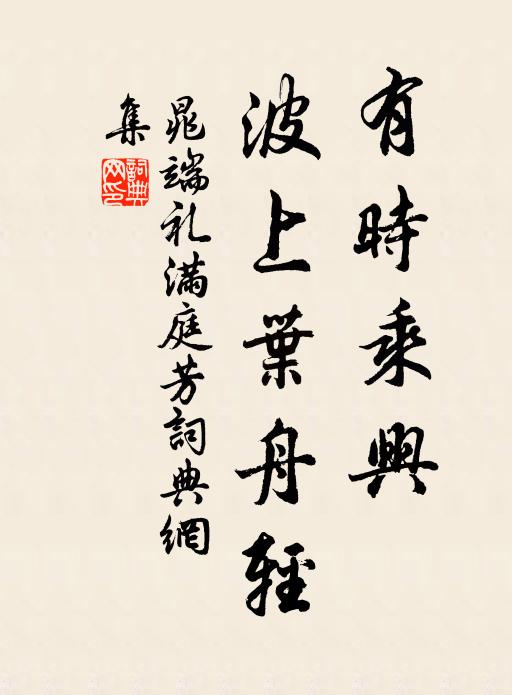 有時乘興
波上葉舟輕
晁端礼滿庭芳詞典網
集
詞典網印